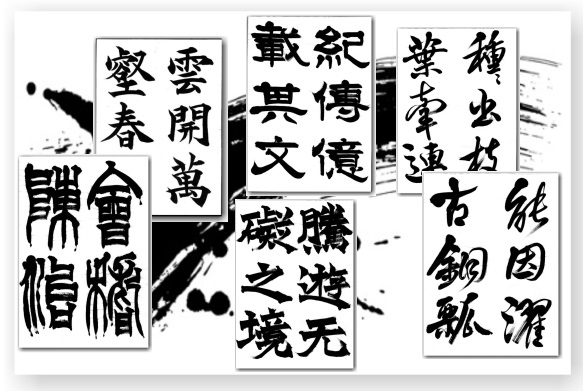 雲開萬
壑春
紀傳億
載其文
種出枝
葉牽連
會稽
陳
騰遊无
礙之境
能因濯
古銅瓢